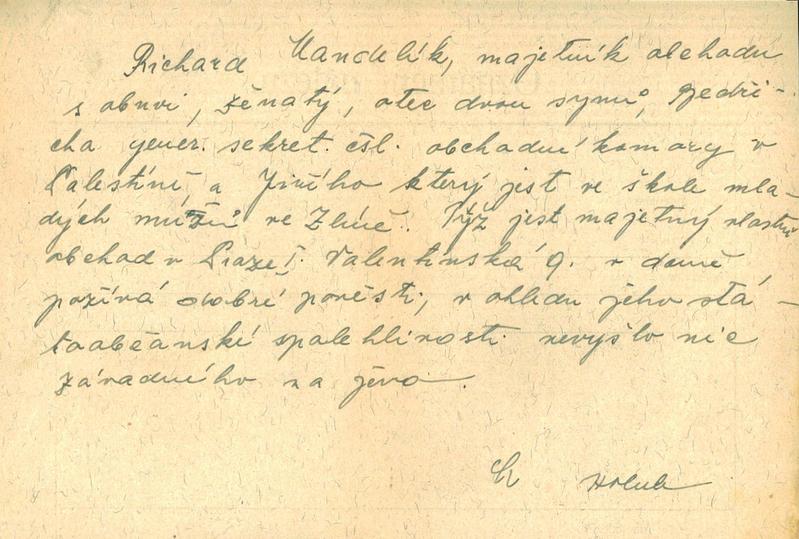 Richard Mandelík, majetník obchodu
s obuví, ženatý, otec dvou synů, Bedři-
cha gener. sekret. čsl. obchodní komory v
Palestíně a Jiřího který jest ve škole mla-
dých mužů ve Zlíně. Týž jest majetný vlastní
obchod v Praze I. Valentinská 9. v domě
požívá dobré pověsti, v ohledu jeho stá-
toobčanské spolehlivosti nevyšlo nic
závadného na jevo.
Holub